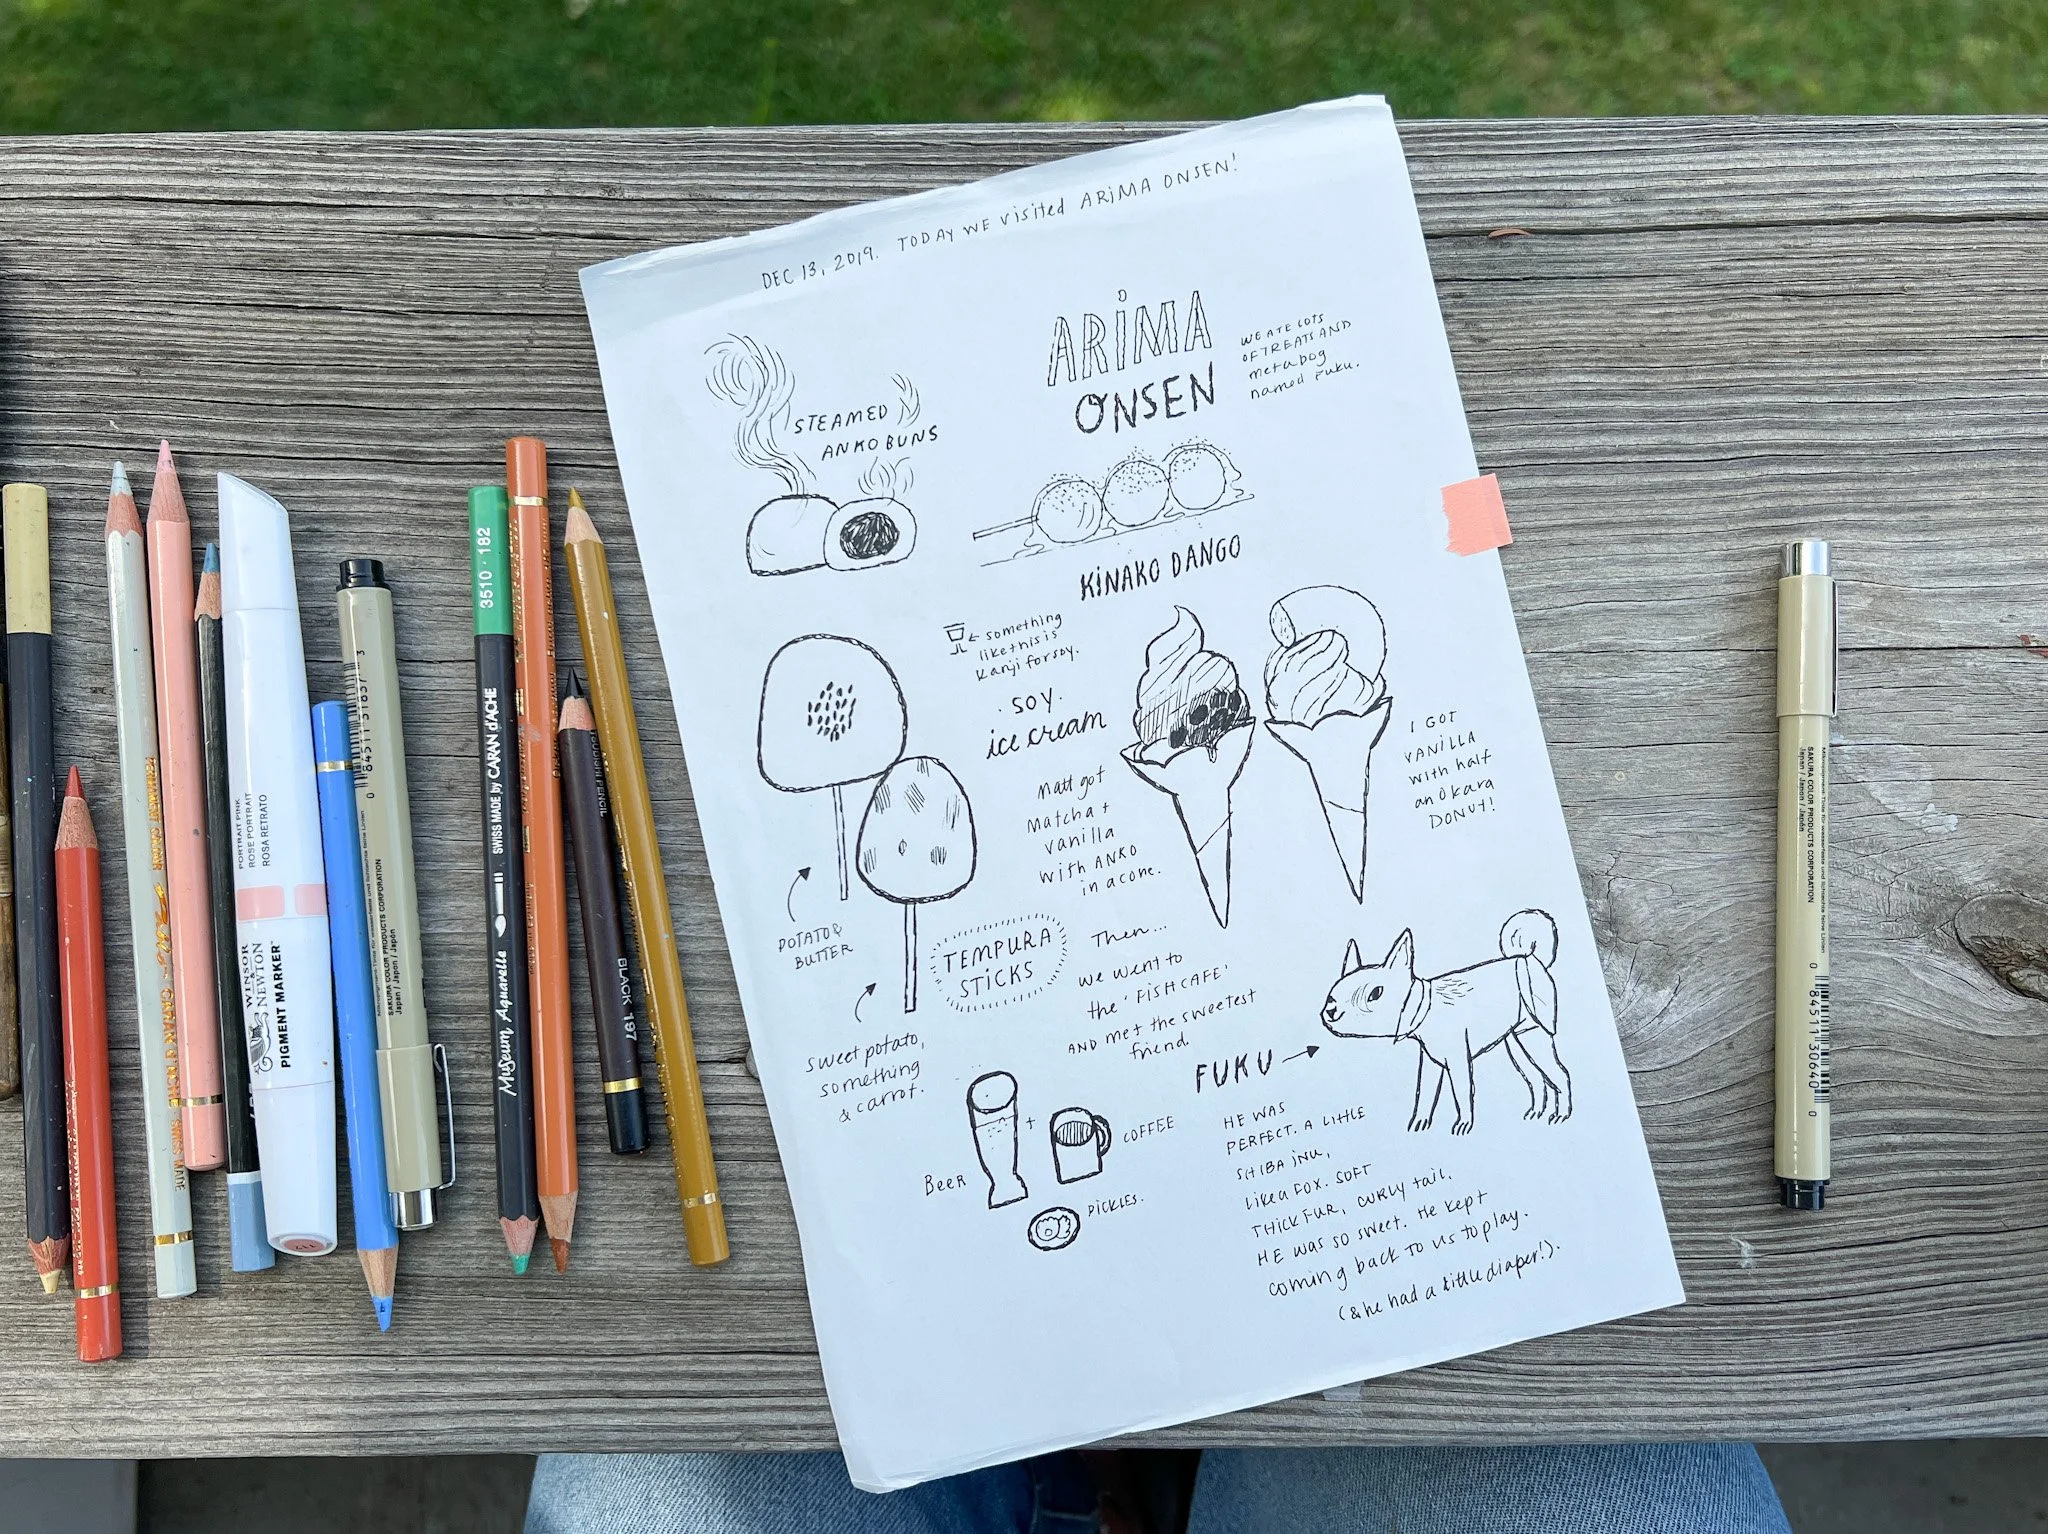 DEC 13, 2019. TODAY WE visited ARiMA ONSEN!
ARiMA
ONSEN
WE ATE LOTS
OF TREATS AND
met a DOG
named Fuku.
STEAMED
ANKO BUNS
KiNAKO DANGO
← something
like this is
Kanji for soy.
. SOY.
ice cream
Matt got
Matcha +
vanilla
with ANKO
in a cone.
I GOT
VANILLA
with half
an Okara
DONUT!
POTATO &
BUTTER
TEMPURA
STiCKS
sweet potato,
something
& carrot.
Then...
We went to
the 'FISH CAFE'
AND met the sweetest
friend.
FUKU →
HE WAS
PERFECT. A LITTLE
SHIBA iNU,
Like a FOX. SOFT
THICK FUR, CURLY tail.
HE was so sweet. He kept
coming back to us to play.
(& he had a little diaper!).
BEER
+
COFFEE
PICKLES.
PORTRAIT PINK
ROSE PORTRAIT
ROSA RETRATO
WINSOR
& NEWTON
PIGMENT MARKER™
SAKURA COLOR PRODUCTS CORPORATION
Japan / Japon / Japón
0 84511 31837 3
3510 · 182
SWISS MADE by CARAN d'ACHE
Museum Aquarelle
BLACK - 197
SWISS MADE
SAKURA COLOR PRODUCTS CORPORATION
Japan / Japon / Japón
0 84511 30640 0